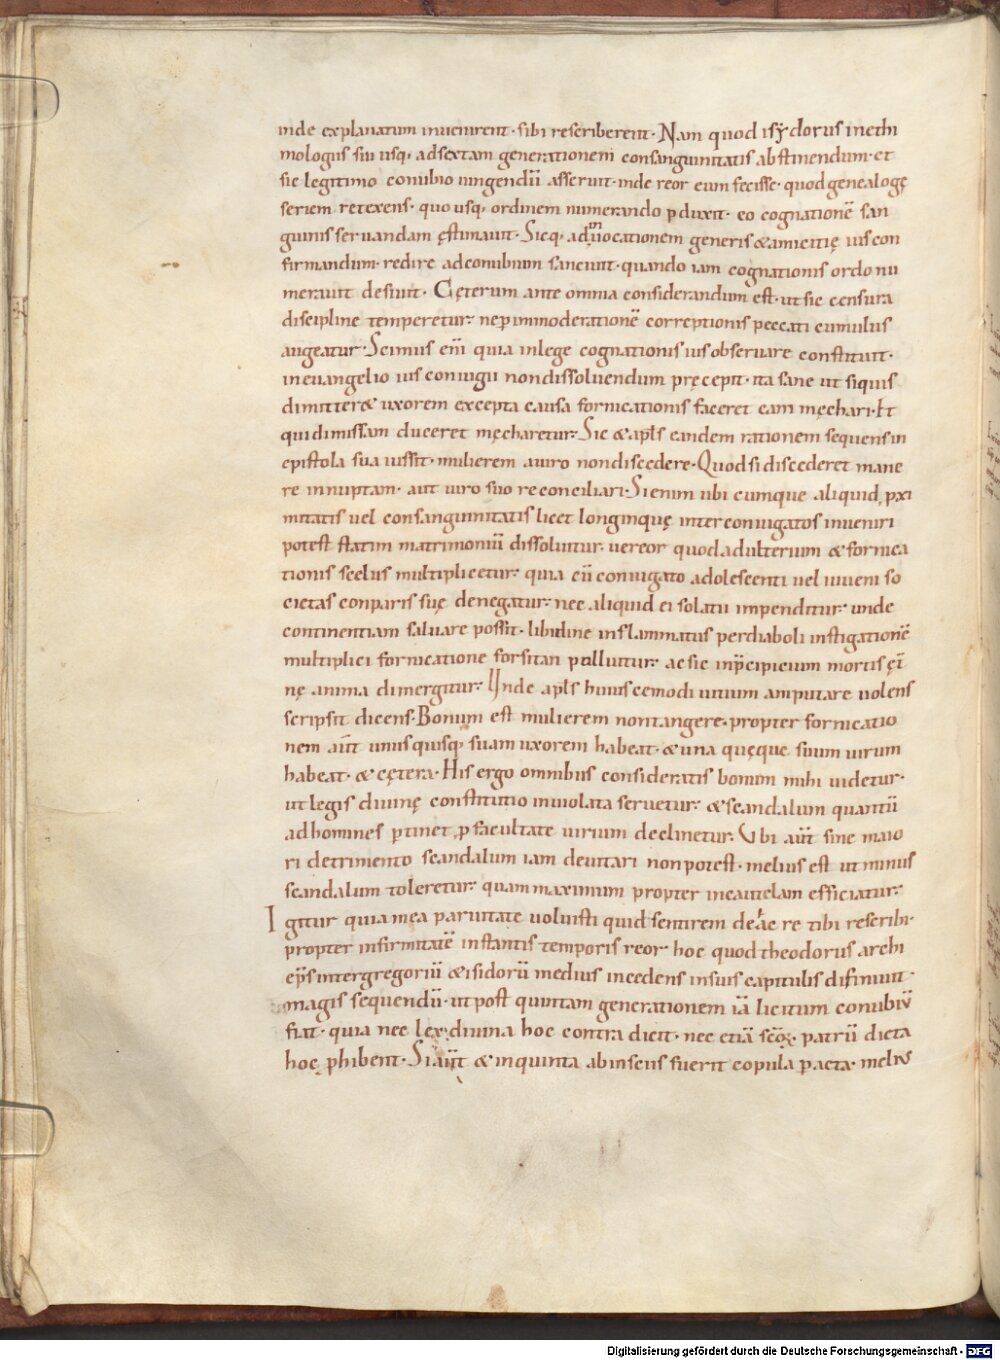 inde explanatum invenirent· sibi rescriberent· Nam quod isẏdorus in ethi
mologiis sui usq; ad sextam generationem consanguinitatis abstinendum· et
sic legitimo conubio iungendū asserit· inde reor eum fecisse· quod genealogę
seriem retexens· quo usq; ordinem numerando ꝓduxit· eo cognationē san
guinis servandam ęstimavit· Sicq; ad uocationem generis & amicitię ius con
firmandum· redire ad conubium sanciuit· quando iam cognationis ordo nu
merari desiuit· Cęterum ante omnia considerandum est· ut sic censura
discipline temperetur· ne ꝑ immoderationē correptionis peccati cumulus
augeatur· Scimus enī quia in lege cognationis ius observare constituit·
in euangelio ius coniugii non dissoluendum pręcepit· ita sane ut siquis
dimitter& uxorem excepta causa fornicationis faceret eam męchari· Et
qui dimissam duceret męcharetur· Sic & apl̄s eandem rationem sequens in
epistola sua iussit· mulierem a uiro non discedere· Quod si discederet mane
re innuptam· aut uiro suo reconciliari· Si enim ubi cumque aliquid ꝓxi
mitatis uel consanguinitatis licet longinquę inter coniugatos inueniri
potest statim matrimoniū dissoluitur· uereor quod adulterium & fornica
tionis scelus multiplicetur· quia cū coniugato adolescenti uel iuueni so
cietas conparis suę denegatur· nec aliquid ei solatii impenditur· unde
continentiam saluare possit· libidine inflammatus per diaboli instigationē
multiplici fornicatione forsitan polluitur· ac sic in p̄cipicium mortis ęt̄
nę anima dimergitur· Unde apl̄s huiuscemodi uitium amputare uolens
scripsit dicens· Bonum est mulierem non tangere· propter fornicatio
nem aūt unus quisq; suam uxorem habeat· & una quęque suum uirum
habeat· & cętera· His ergo omnibus consideratis bonum mihi uidetur·
ut legis diuinę constitutio inuiolata seruetur· & scandalum quantū
ad homines ꝑtinet ꝓ facultate uirium declinetur· Ubi aūt sine maio
ri detrimento scandalum iam deuitari non potest· melius est ut minus
scandalum toleretur· quam maximum propter incautelam efficiatur·
Igitur quia mea paruitate uoluisti quid sentirem de ac re tibi rescribi·
propter infirmitatē instantis temporis reor hoc quod theodorus archi
ep̄s inter gregoriū & isidorū medius incedens in suis capitulis difiniuit·
magis sequendū· ut post quintam generationem iā licitum conubiū
fiat· quia nec lex diuina hoc contra dicit· nec etiā sc̄oꝝ patrū dicta
hoc ꝓhibent· Si aūt & in quinta ab insciis fuerit copula ꝑacta· melius
Digitalisierung gefördert durch die Deutsche Forschungsgemeinschaft - DFG